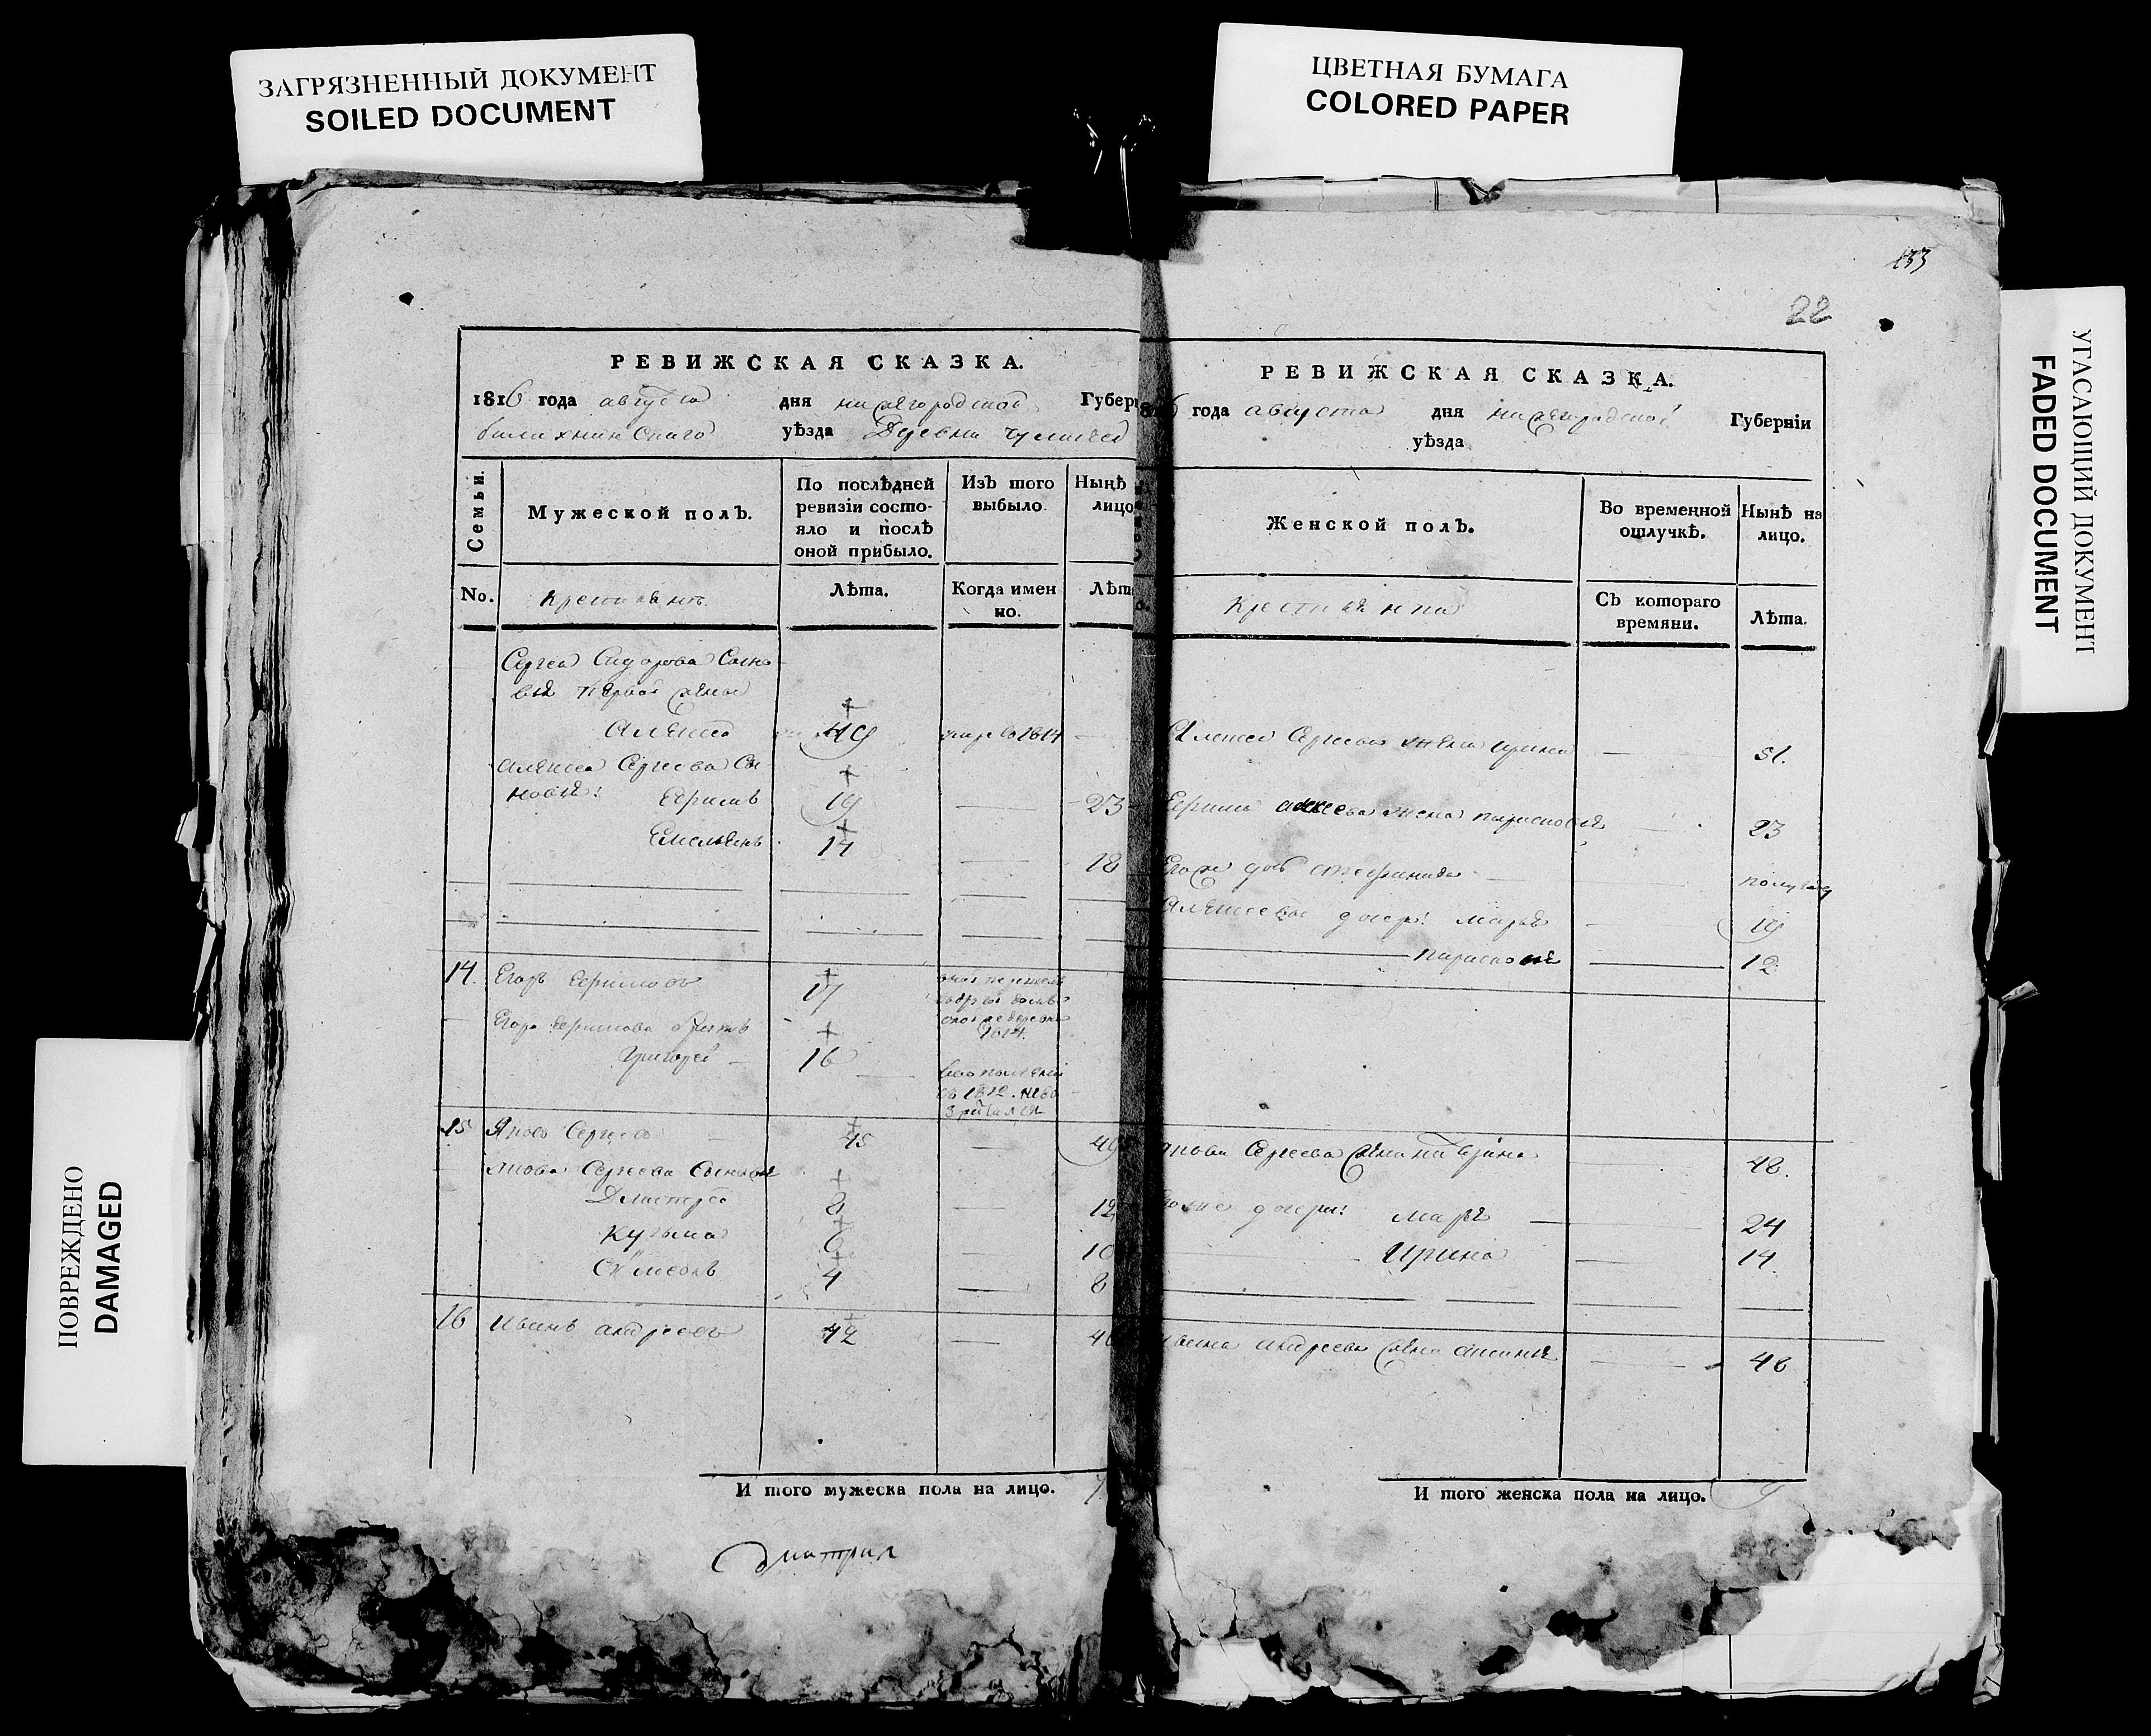 ЗАГРЯЗНЕННЫЙ ДОКУМЕНТ
SOILED DOCUMENT
ЦВЕТНАЯ БУМАГА
COLORED PAPER
УГАСАЮЩИЙ ДОКУМЕНТ
FADED DOCUMENT
ПОВРЕЖДЕНО
DAMAGED
133
22
РЕВИЖСКАЯ СКАЗКА.
1816 года августа дня нижегородской Губерн
балахнинскаго уѣзда Деревни
Семьи.
Мужеской полъ.
По послѣдней ревизіи состо-
яло и послѣ
оной прибыло.
Изъ того
выбыло.
Нынѣ
лицо
No.
крестьянъ.
Лѣта.
Когда имен
но.
Лѣта
Сергея Сидорова Сыно-
вья первой жены
Алексей 49 1814
Алексея Сергеева Сы-
новья: Ефимъ 19 — 23
Емельянъ 14 — 18
14. Егоръ Ефимовъ 17
1814.
Егора Ефимова
Григорей — 16
въ ополченіи
съ 1812. нево
зратился
15 Яковъ Сергеевъ 45 — 49
Якова Сергеева Сыновья
Дмитрей 8 — 12
Кузьма 6 — 10
Симеонъ 4 — 8
16 Иванъ андреевъ 42 — 46
И того мужеска пола на лицо. 7
Дмитрия
РЕВИЖСКАЯ СКАЗКА.
6 года августа дня нижегородской Губерніи
уѣзда
Женской полъ.
Во временной
отлучкѣ.
Нынѣ на
лицо.
крестьянка
Съ котораго
времяни.
Лѣта.
Алексея Сергеева жена ирина — 51.
Ефима жена парасковья — 23
Егоже дочь — полугоду
Алексеевы дочери: Марья — 19
парасковья — 12
Якова Сергеева жена катерина — 48.
дочери: Марья — 24
Ирина — 14.
Ивана андреева жена аксинья — 48
И того женска пола на лицо. 9